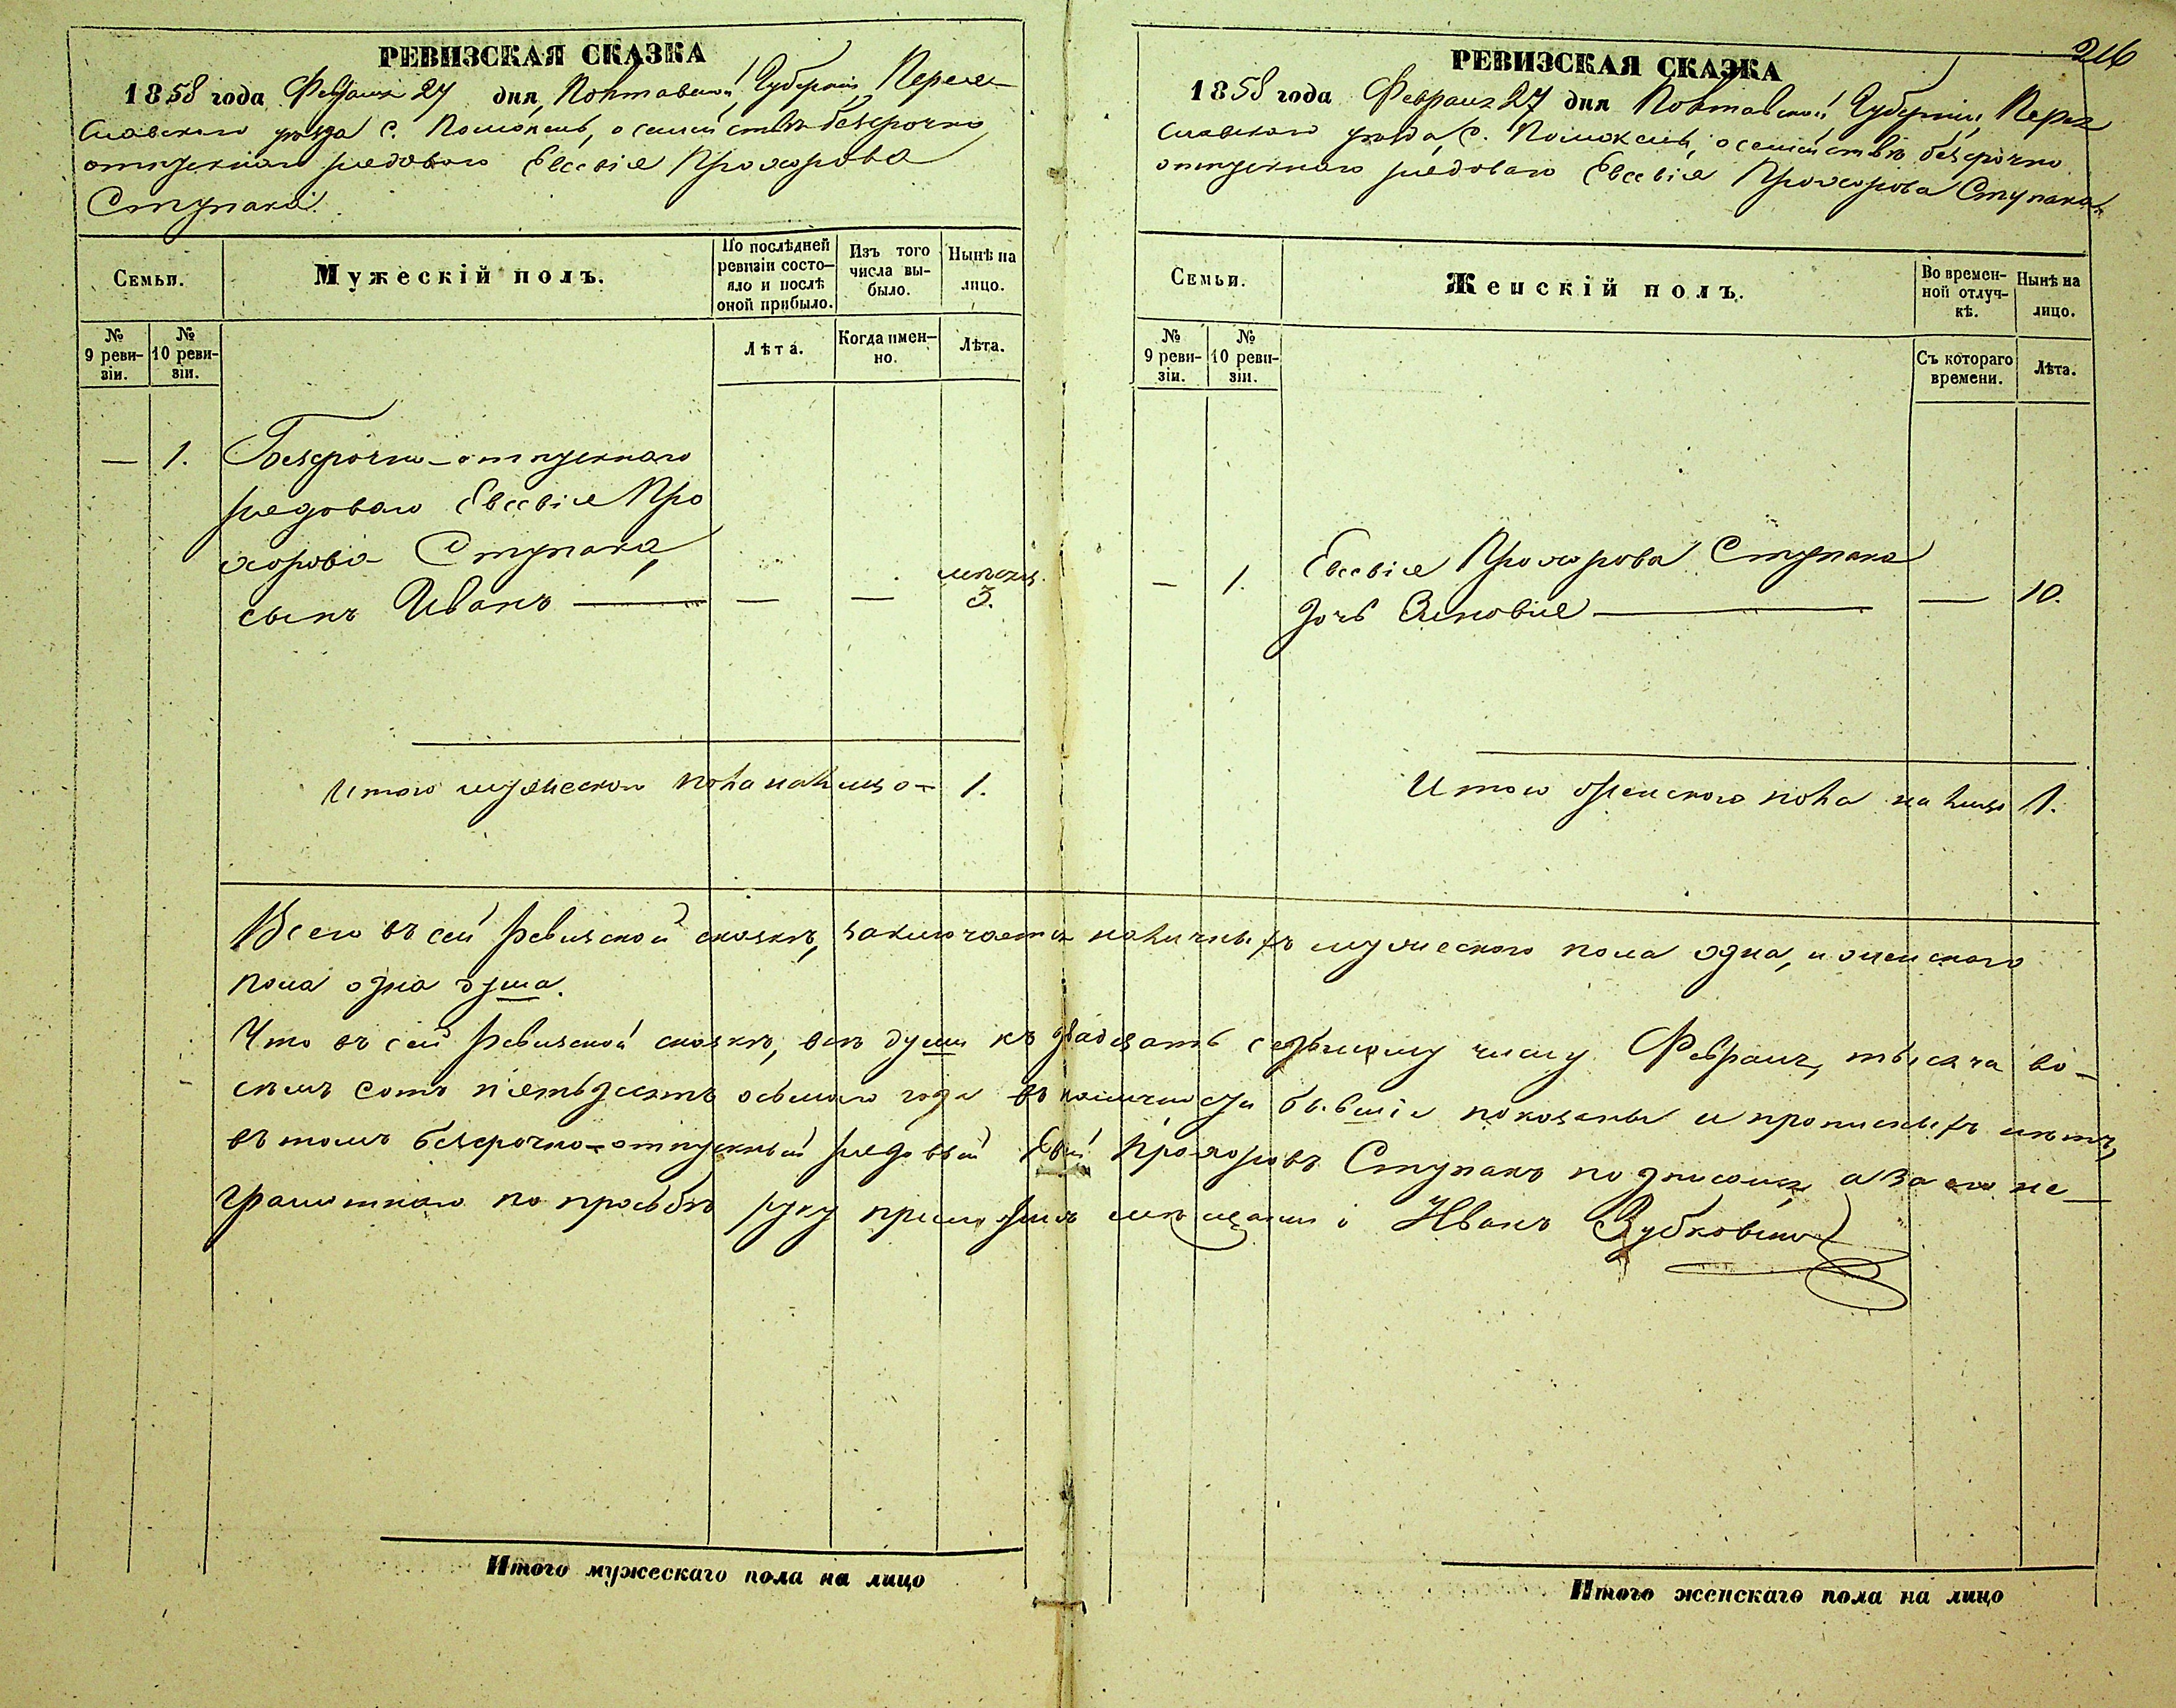 РЕВИЗСКАЯ СКАЗКА
1858 года Февраля 27 дня, Полтавской Губерніи Перея-
славскаго уѣзда с. Помоклей, о семействѣ безсрочно
отпускнаго рядоваго Евсевія Прохорова
Ступака.
Семьи.
Мужескій полъ.
По послѣдней ревизіи состо-
яло и послѣ оной прибыло.
Изъ того числа вы-
было.
Нынѣ на лицо.
№ 9 реви-
зіи.
№ 10 реви-
зіи.
Лѣта.
Когда имен-
но.
Лѣта.
— 1. Безсрочно-отпускнаго
рядоваго Евсевія Про
хорова Ступака,
сынъ Иванъ — — — мѣсяц. 3.
Итого мужескаго пола налицо — 1.
216
РЕВИЗСКАЯ СКАЗКА
1858 года Февраля 27 дня Полтавской Губерніи, Перея
славскаго уѣзда, с. Помоклей, о семействѣ безсрочно
отпускнаго рядоваго Евсевія Прохорова Ступака.
Семьи.
Женскій полъ.
Во времен-
ной отлуч-
кѣ.
Нынѣ на лицо.
№ 9 реви-
зіи.
№ 10 реви-
зіи.
Съ котораго времени.
Лѣта.
— 1. Евсевія Прохорова Ступака
дочь Зиновія — — 10.
Итого женскаго пола на лицо 1.
Всего въ сей Ревизской сказкѣ, заключается наличныхъ мужескаго пола одна, и женскаго
пола одна душа.
Что въ сей Ревизской сказкѣ, всѣ души къ двадцать седьмому числу Февраля, тысяча во-
семь сотъ пятьдесятъ осьмаго года въ наличности бывшія показаны и прописныхъ нѣтъ,
въ томъ безсрочно-отпускный рядовый Прохоровъ Ступакъ подписался, а за его не-
грамотнаго по просьбѣ руку приложилъ мѣщанинъ Иванъ
Итого мужескаго пола на лицо
Итого женскаго пола на лицо